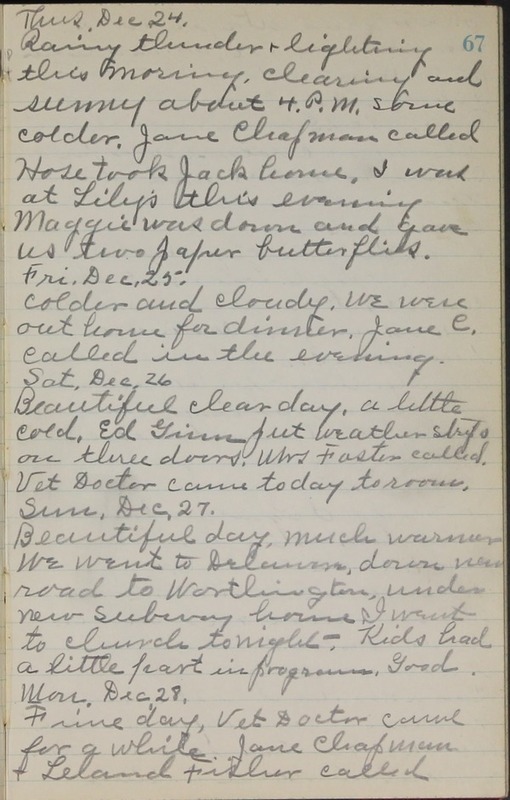 Thus. Dec 24.
67
Rainy thunder + lightning
this morning, clearing and
sunny about 4. P.M. some
colder. Jane Chapman called
Hose took Jack home, I was
at Lily's this evening
Maggie was down and gave
us two paper butterflies.
Fri. Dec. 25.
Colder and cloudy. We were
out home for dinner. Jane C.
called in the evening.
Sat. Dec. 26
Beautiful clear day, a little
cold. Ed Ginn put weather strips
on three doors. Mrs Foster called.
Vet Doctor came today to room.
Sun. Dec. 27.
Beautiful day, much warmer
We went to Delaware, down new
road to Worthington, under
new subway home I went
to church tonight - Kids had
a little part in program. Good.
Mon. Dec 28.
Fine day, Vet Doctor came
for a while Jane Chapman
+ Leland Fisher called